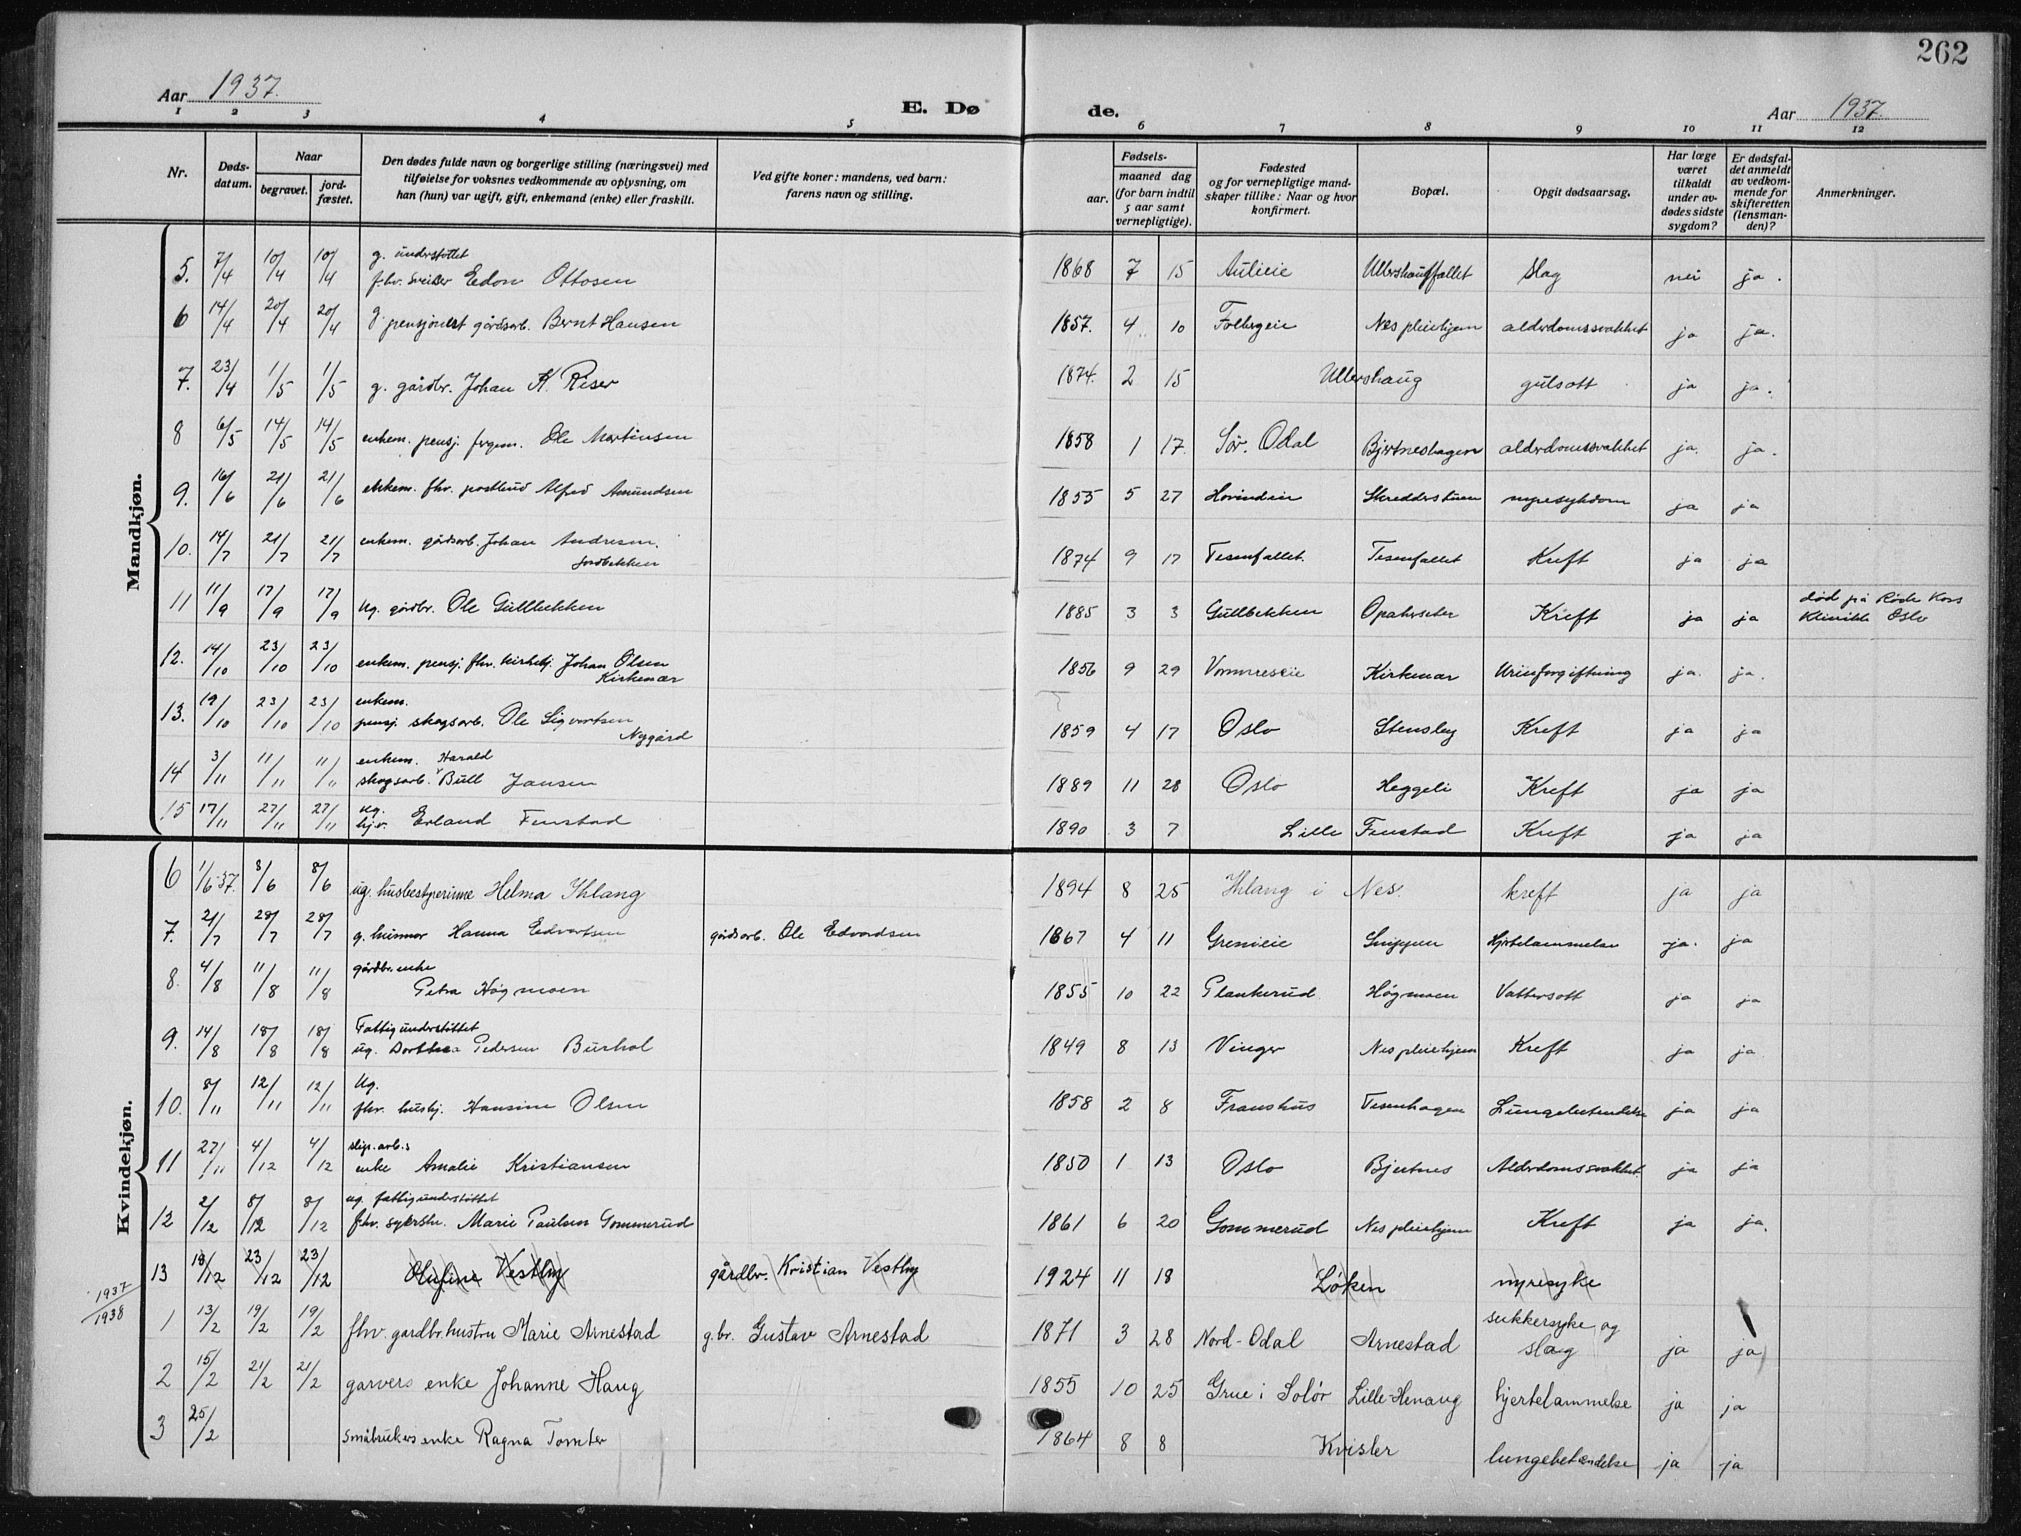 262
Aar 1937. E. Dø de. Aar 1937.
1 2 3 4 5 6 7 8 9 10 11 12
Nr. Døds-datum. Naar begravet. jord-fæstet. Den dødes fulde navn og borgerlige stilling (næringsvei) med tilføielse for voksnes vedkommende av oplysning, om han (hun) var ugift, gift, enkemand (enke) eller fraskilt. Ved gifte koner: mandens, ved barn: farens navn og stilling. Fødsels- aar. maaned dag (for barn indtil 5 aar samt vernepligtige). Fødested og for vernepligtige mand-skaper tillike: Naar og hvor konfirmert. Bopæl. Opgit dødsaarsag. Har læge været tilkaldt under av-dødes sidste sygdom? Er dødsfal-det anmeldt av vedkom-mende for skifteretten (lensman-den)? Anmerkninger.
Mandkjøn.
5. 7/4 10/4 10/4 g. understøttet fhv. sveiser Edon Ottosen 1868 7 15 Aulieie Ullershaugfallet Slag nei ja.
6 14/4 20/4 20/4 g. pensjonist gårdsarb. Bernt Hansen 1857. 4 10 Folbergeie Nes pleiehjem alderdomssvakhet ja ja.
7. 23/4 1/5 1/5 g. gårdbr. Johan K. Riser 1874. 2 15 Ullershaug gulsott ja ja.
8 6/5 14/5 14/5 enkem. pensj. Ole Martinsen 1858 1 17. Sør. Odal Bjertneshagen alderdomssvakhet ja. ja.
9. 16/6 21/6 21/6 enkem. fhv. postbud Alfred Amundsen 1855 5 27 Hovindeie Skredderstuen nyresykdom ja ja
10. 14/7 21/7 21/7 enkem. gårdsarb. Johan Andresen. Jordbekken 1874 9 17 Tesenfallet. Tesenfallet Kreft ja ja
11 11/9 17/9 17/9 ug. gårdbr. Ole Gullbekken 1885 3 3 Gullbekken Opakerseter Kreft ja ja død på Røde Kors Klinikk Oslo
12. 14/10 23/10 23/10 enkem. pensj. fhv. kirketj. Johan Olsen Kirkenær 1856 9 29 Vormneseie Kirkenær Urinforgiftning ja. ja.
13. 19/10 23/10 23/10 enkem. pensj. skogsarb. Ole Sigvartsen Nygård 1859 4 17 Oslo Stensby Kreft ja ja
14 3/11 11/11 11/11 enkem. skogsarb. Harald Bull Jansen 1889 11 28 Oslo Heggeli Kreft ja ja
15 17/11 27/11 27/11 ug. Erland Finstad 1890 3 7 Lille Finstad Kreft ja ja
Kvindekjøn.
6 1/6-37. 8/6 8/6 ug. husbestyrerinne Helma Ihlang 1894 8 25 Ihlang i Nes. kreft ja ja
7. 21/7 28/7 28/7 g. husmor Hanna Edvartsen gårdsarb. Ole Edvardsen 1867 4 11 Grenieie Snippen Hjertelammelse ja. ja
8. 4/8 11/8 11/8 gårdbr. enke Petra Høgmoen 1855 10 22 Plankerud Høgmoen Vattersott ja ja
9. 14/8 18/8 18/8 Fattigunderstøttet ug. Dorthea Pedersen Burhol 1849 8 13 Vinger Nes pleiehjem Kreft ja ja
10. 8/11 12/11 12/11 Ug. fhv. hushj. Hansine Olsen 1858 2 8 Franshus Tesenhagen Lungebetendelse ja ja
11 27/11 4/12 4/12 slip. arb.s enke Amalie Kristiansen 1850 1 13 Oslo Bjertnes Alderdomssvakhet. ja ja
12 2/12 8/12 8/12 ug. fattigunderstøttet fhv. syerske. Marie Paulsen Gommerud 1861 6 20 Gommerud Nes pleiehjem Kreft ja ja.
13 18/12 23/12 23/12 Olufine Vestby gårdbr. Kristian Vestby 1924 11 18 Løken nyresyke
1937/1938
1 13/2 19/2 19/2 fhv. gardbr. hustru Marie Arnestad g.br. Gustav Arnestad 1871 3 28 Nord-Odal Arnestad sukkersyke og slag ja ja
2 15/2 21/2 21/2 garvers enke Johanne Haug 1855 10 25 Grue i Solør Lille-Henaug hjertelammelse ja ja
3 25/2 småbrukers enke Ragna Tomter 1864 8 8 Kvisler lungebetændelse ja ja